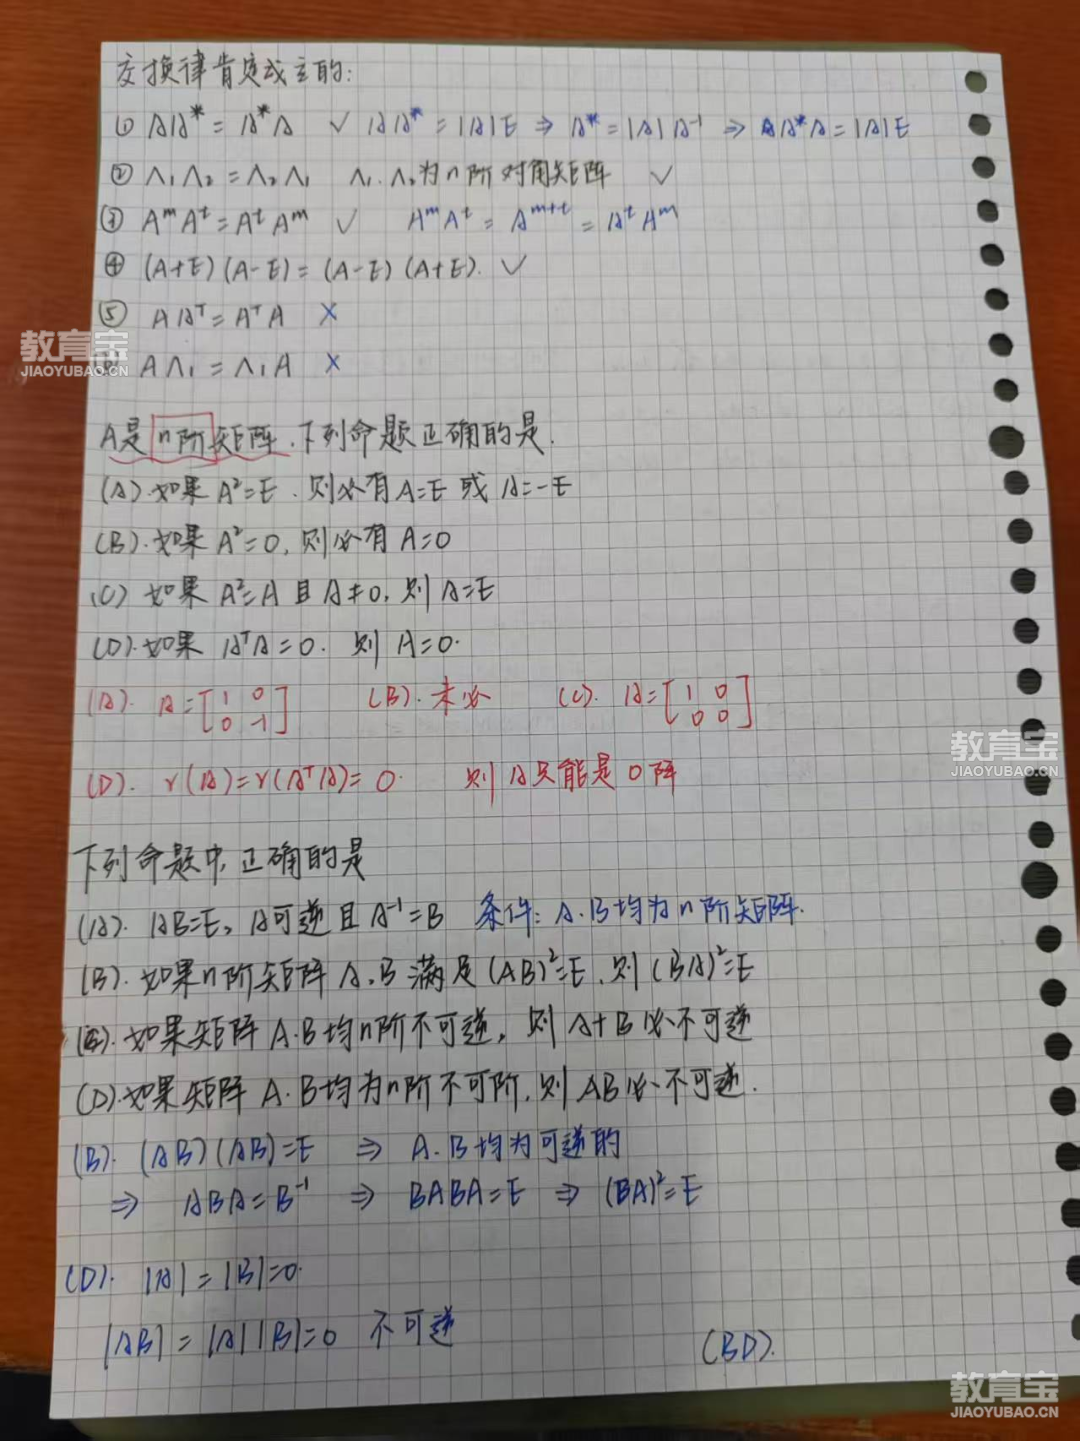 交换律肯定成立的:
① AA* = A*A ✓ AA* = |A|E ⇒ A* = |A|A⁻¹ ⇒ AA*A = |A|E
② Λ₁Λ₂ = Λ₂Λ₁ Λ₁.Λ₂为n阶对角矩阵 ✓
③ AᵐAᵗ = AᵗAᵐ ✓ AᵐAᵗ = Aᵐ⁺ᵗ = AᵗAᵐ
④ (A+E)(A-E) = (A-E)(A+E). ✓
⑤ AAᵀ = AᵀA ×
AΛ₁ = Λ₁A ×
A是n阶矩阵.下列命题正确的是.
(A).如果 A²=E .则必有A=E 或 A=-E
(B).如果 A²=0,则必有 A=0
(C) 如果 A²=A 且 A≠0,则 A=E
(D).如果 AᵀA=0. 则 A=0.
(A). A=[1 0 (B).未必 (C). A=[1 0
0 -1] 0 0]
(D). r(A)=r(AᵀA)=0. 则A只能是0阵
下列命题中,正确的是
(A). AB=E, A可逆且A⁻¹=B 条件: A.B均为n阶矩阵.
(B).如果n阶矩阵A.B满足(AB)²=E.则(BA)²=E
(C).如果矩阵A.B均n阶不可逆,则A+B必不可逆
(D).如果矩阵A.B均为n阶不可阶,则AB必不可逆.
(B). (AB)(AB)=E ⇒ A.B均为可逆的
⇒ ABA=B⁻¹ ⇒ BABA=E ⇒ (BA)²=E
(D). |A|=|B|=0.
|AB|=|A||B|=0 不可逆
(BD).
教育宝
JIAOYUBAO.CN
教育宝
JIAOYUBAO.CN
教育宝
JIAOYUBAO.CN